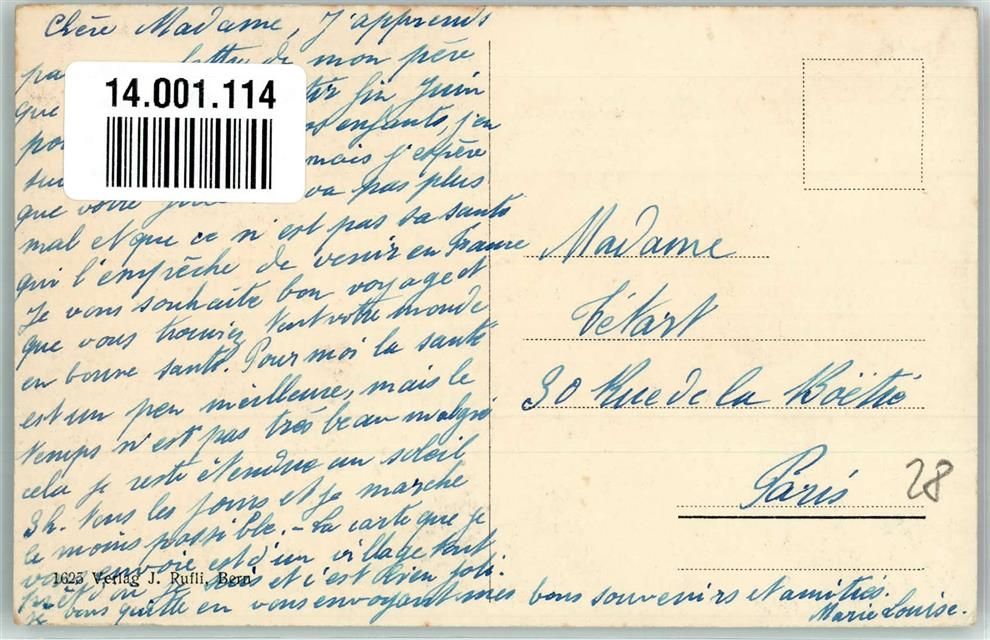 Chère Madame, J'apprends
lettre de mon père
que fin Juin
enfants, j'en
mais j'espère
que votre va pas plus
mal et que ce n'est pas sa santé
qui l'empêche de venir en France
Je vous souhaite bon voyage et
que vous trouviez tout votre monde
en bonne santé. Pour moi la santé
est un peu meilleure, mais le
temps n'est pas très beau malgré
cela je reste étendue au soleil
3h. tous les jours et je marche
le moins possible. - La carte que je
vous envoie est d'un village tout
près d'où je suis et c'est bien joli.
Je vous quitte en vous envoyant mes bons souvenirs et amitiés.
Marie Louise.
14.001.114
1625 Verlag J. Rufli, Bern
Madame
Tétart
30 Rue de la Boëtie
Paris
28